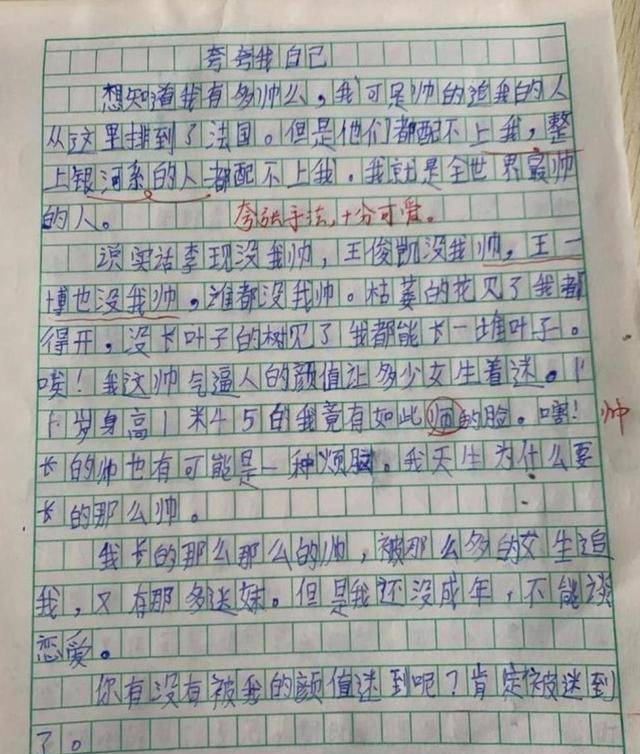 夸夸我自己
想知道我有多帅么，我可是帅的追我的人
从这里排到了法国。但是他们都配不上我，整
上银河系的人都配不上我。我就是全世界最帅
的人。 夸张手法，十分可爱。
说实话李现没我帅，王俊凯没我帅，王一
博也没我帅，谁都没我帅。枯萎的花见了我都
得开，没长叶子的树见了我都能长一堆叶子。
唉！我这帅气逼人的颜值让多少女生着迷。1
1岁身高1米45的我竟有如此师的脸。嘻！ 帅
长的帅也有可能是一种烦脑。我天生为什么要
长的那么帅。
我长的那么那么的帅，被那么多的女生追
我，又有那多迷妹。但是我还没成年，不能谈
恋爱。
你有没有被我的颜值迷到呢？肯定被迷到
了。